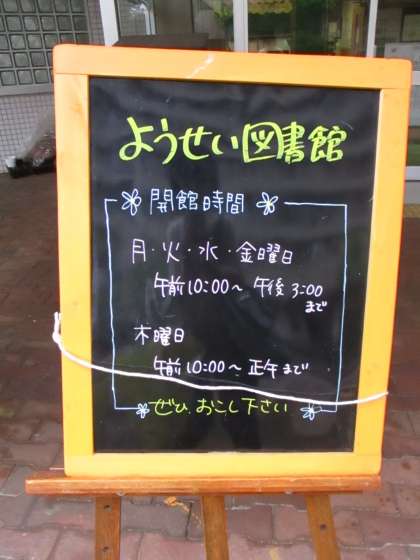 ようせい図書館
開館時間
月・火・水・金曜日
午前10:00〜午後3:00
まで
木曜日
午前10:00〜正午まで
ぜひ おこし下さい